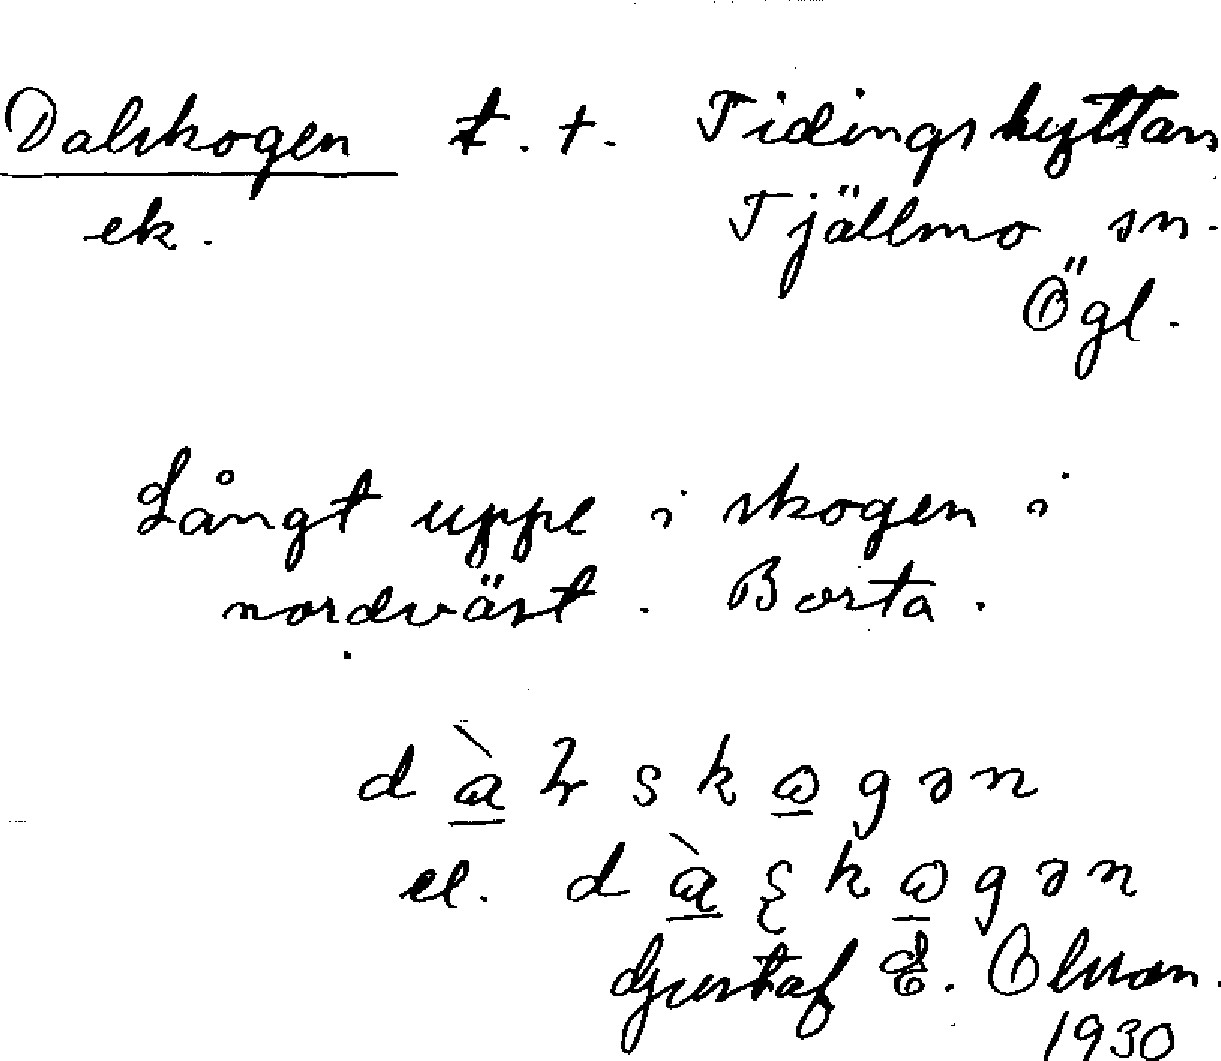 Dalskogen t. t. Tidingshyttan
ek. Tjällmo sn.
Ögl.
Långt uppe i skogen i
nordväst. Borta.
el.
Gustaf E. Olsson.
1930